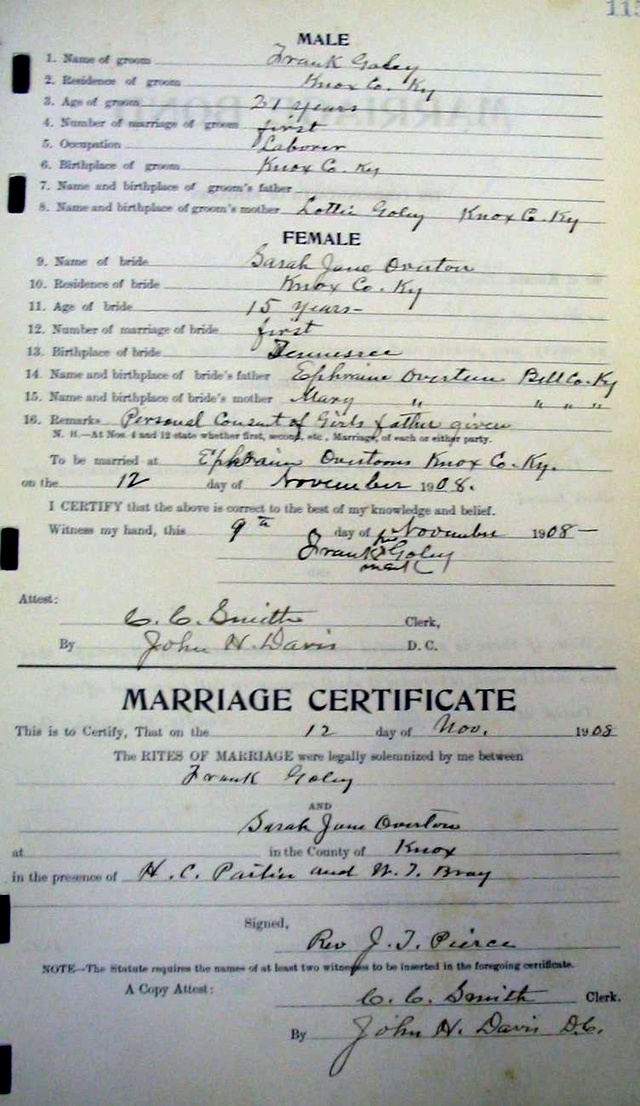 115
MALE
1. Name of groom Frank Goley
2. Residence of groom Knox Co. Ky
3. Age of groom 21 years
4. Number of marriage of groom first
5. Occupation Laborer
6. Birthplace of groom Knox Co. Ky
7. Name and birthplace of groom's father
8. Name and birthplace of groom's mother Lottie Goley Knox Co. Ky
FEMALE
9. Name of bride Sarah Jane Overton
10. Residence of bride Knox Co. Ky
11. Age of bride 15 years-
12. Number of marriage of bride first
13. Birthplace of bride Tennessee
14. Name and birthplace of bride's father Ephraim Overton Bell Co. Ky
15. Name and birthplace of bride's mother Mary " " " "
16. Remarks Personal Consent of Girls father given
N. B.—At Nos. 4 and 12 state whether first, second, etc., Marriage, of each or either party.
To be married at Ephraim Overtons Knox Co. Ky.
on the 12 day of November 1908.
I CERTIFY that the above is correct to the best of my knowledge and belief.
Witness my hand, this 9th day of November 1908-
his
Frank x Goley
mark
Attest:
C. C. Smith Clerk,
By John H. Davis D. C.
MARRIAGE CERTIFICATE
This is to Certify, That on the 12 day of Nov. 1908
The RITES OF MARRIAGE were legally solemnized by me between
Frank Goley
AND
Sarah Jane Overton
at in the County of Knox
in the presence of H. C. and W. T. Bray
Signed,
Rev J. T. Pierce
NOTE—The Statute requires the names of at least two witnesses to be inserted in the foregoing certificate.
A Copy Attest: C. C. Smith Clerk.
By John H. Davis D.C.